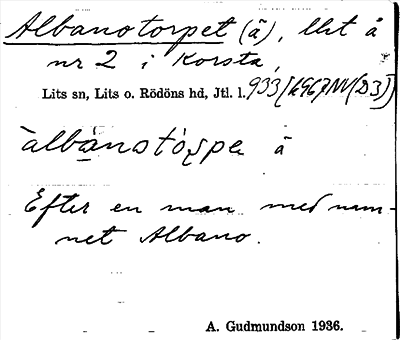 Albanotorpet (ä), lht å
nr 2 i Korsta,
Lits sn, Lits o. Rödöns hd, Jtl. l. 933[k967NV(D3)]
àlbánotórpe ä
Efter en man med nam-
net Albano.
A. Gudmundson 1936.